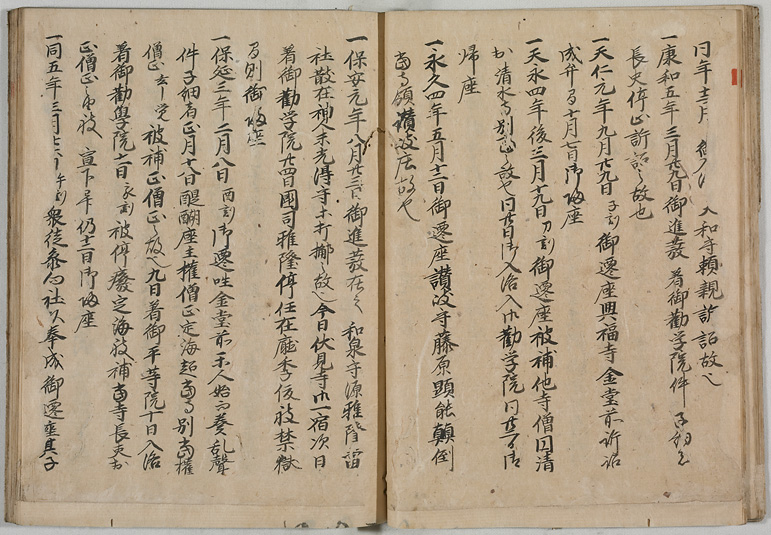 同年十二月 入和守頼親訴詔故也
一康和五年三月廿九日御進發着御勧学院件子細者
長吏停止訴詔之故也
一天仁元年九月廿九日子刻御遷座興福寺金堂前訴詔
成弁 同十月七日御帰座
一天永四年後三月十九日刀刻御遷座被補他寺僧円清
於清水寺別當之故也同廿日御入洛入御勧学院同廿二日御
帰座
一永久四年五月十二日御遷座讃岐守藤原顕能顛倒
當寺領讃岐庄故也
一保安元年八月廿三日御進發在之和泉守源雅隆笛
社散在神人末光得寺十打擲之故也今日伏見寺御一宿次日
着御勧学院廿四日國司雅隆停任在廰季後被禁獄
即刻御帰座
一保延三年二月八日酉刻御遷坐金堂前 人始而養乱聲
件子細者正月十八日醍醐座主權僧正定海超當寺別當權
僧正玄覚被補正僧正之故也九日着御平等院十日入洛
着御勧学院十一日亥刻被停廢定海被補當寺長吏於
正僧正 被宣下畢仍十二日御帰座
一同五年三月廿六日午刻衆徒参向社头奉成御遷座其子